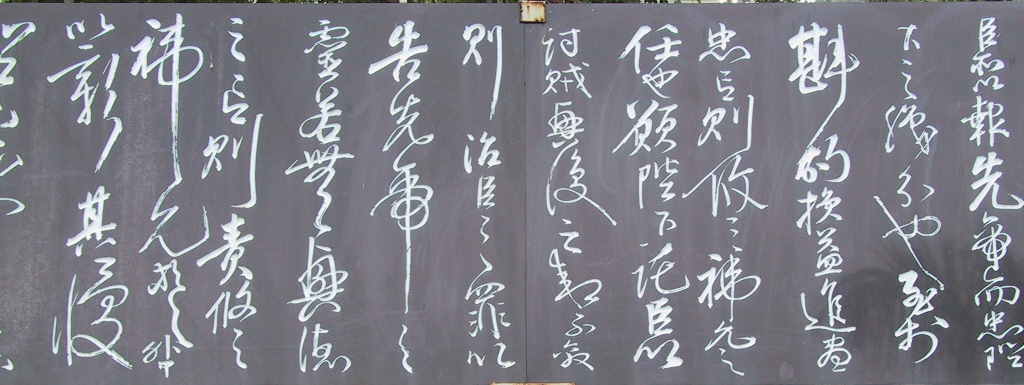 臣所以報先帝而忠陛
下之職分也至於
斟酌損益進盡
忠言則攸之禕允之
任也願陛下託臣以
討賊興復之效不效
則治臣之罪以
告先帝之
靈若無興德
之言則責攸之
禕允等咎
以彰其慢